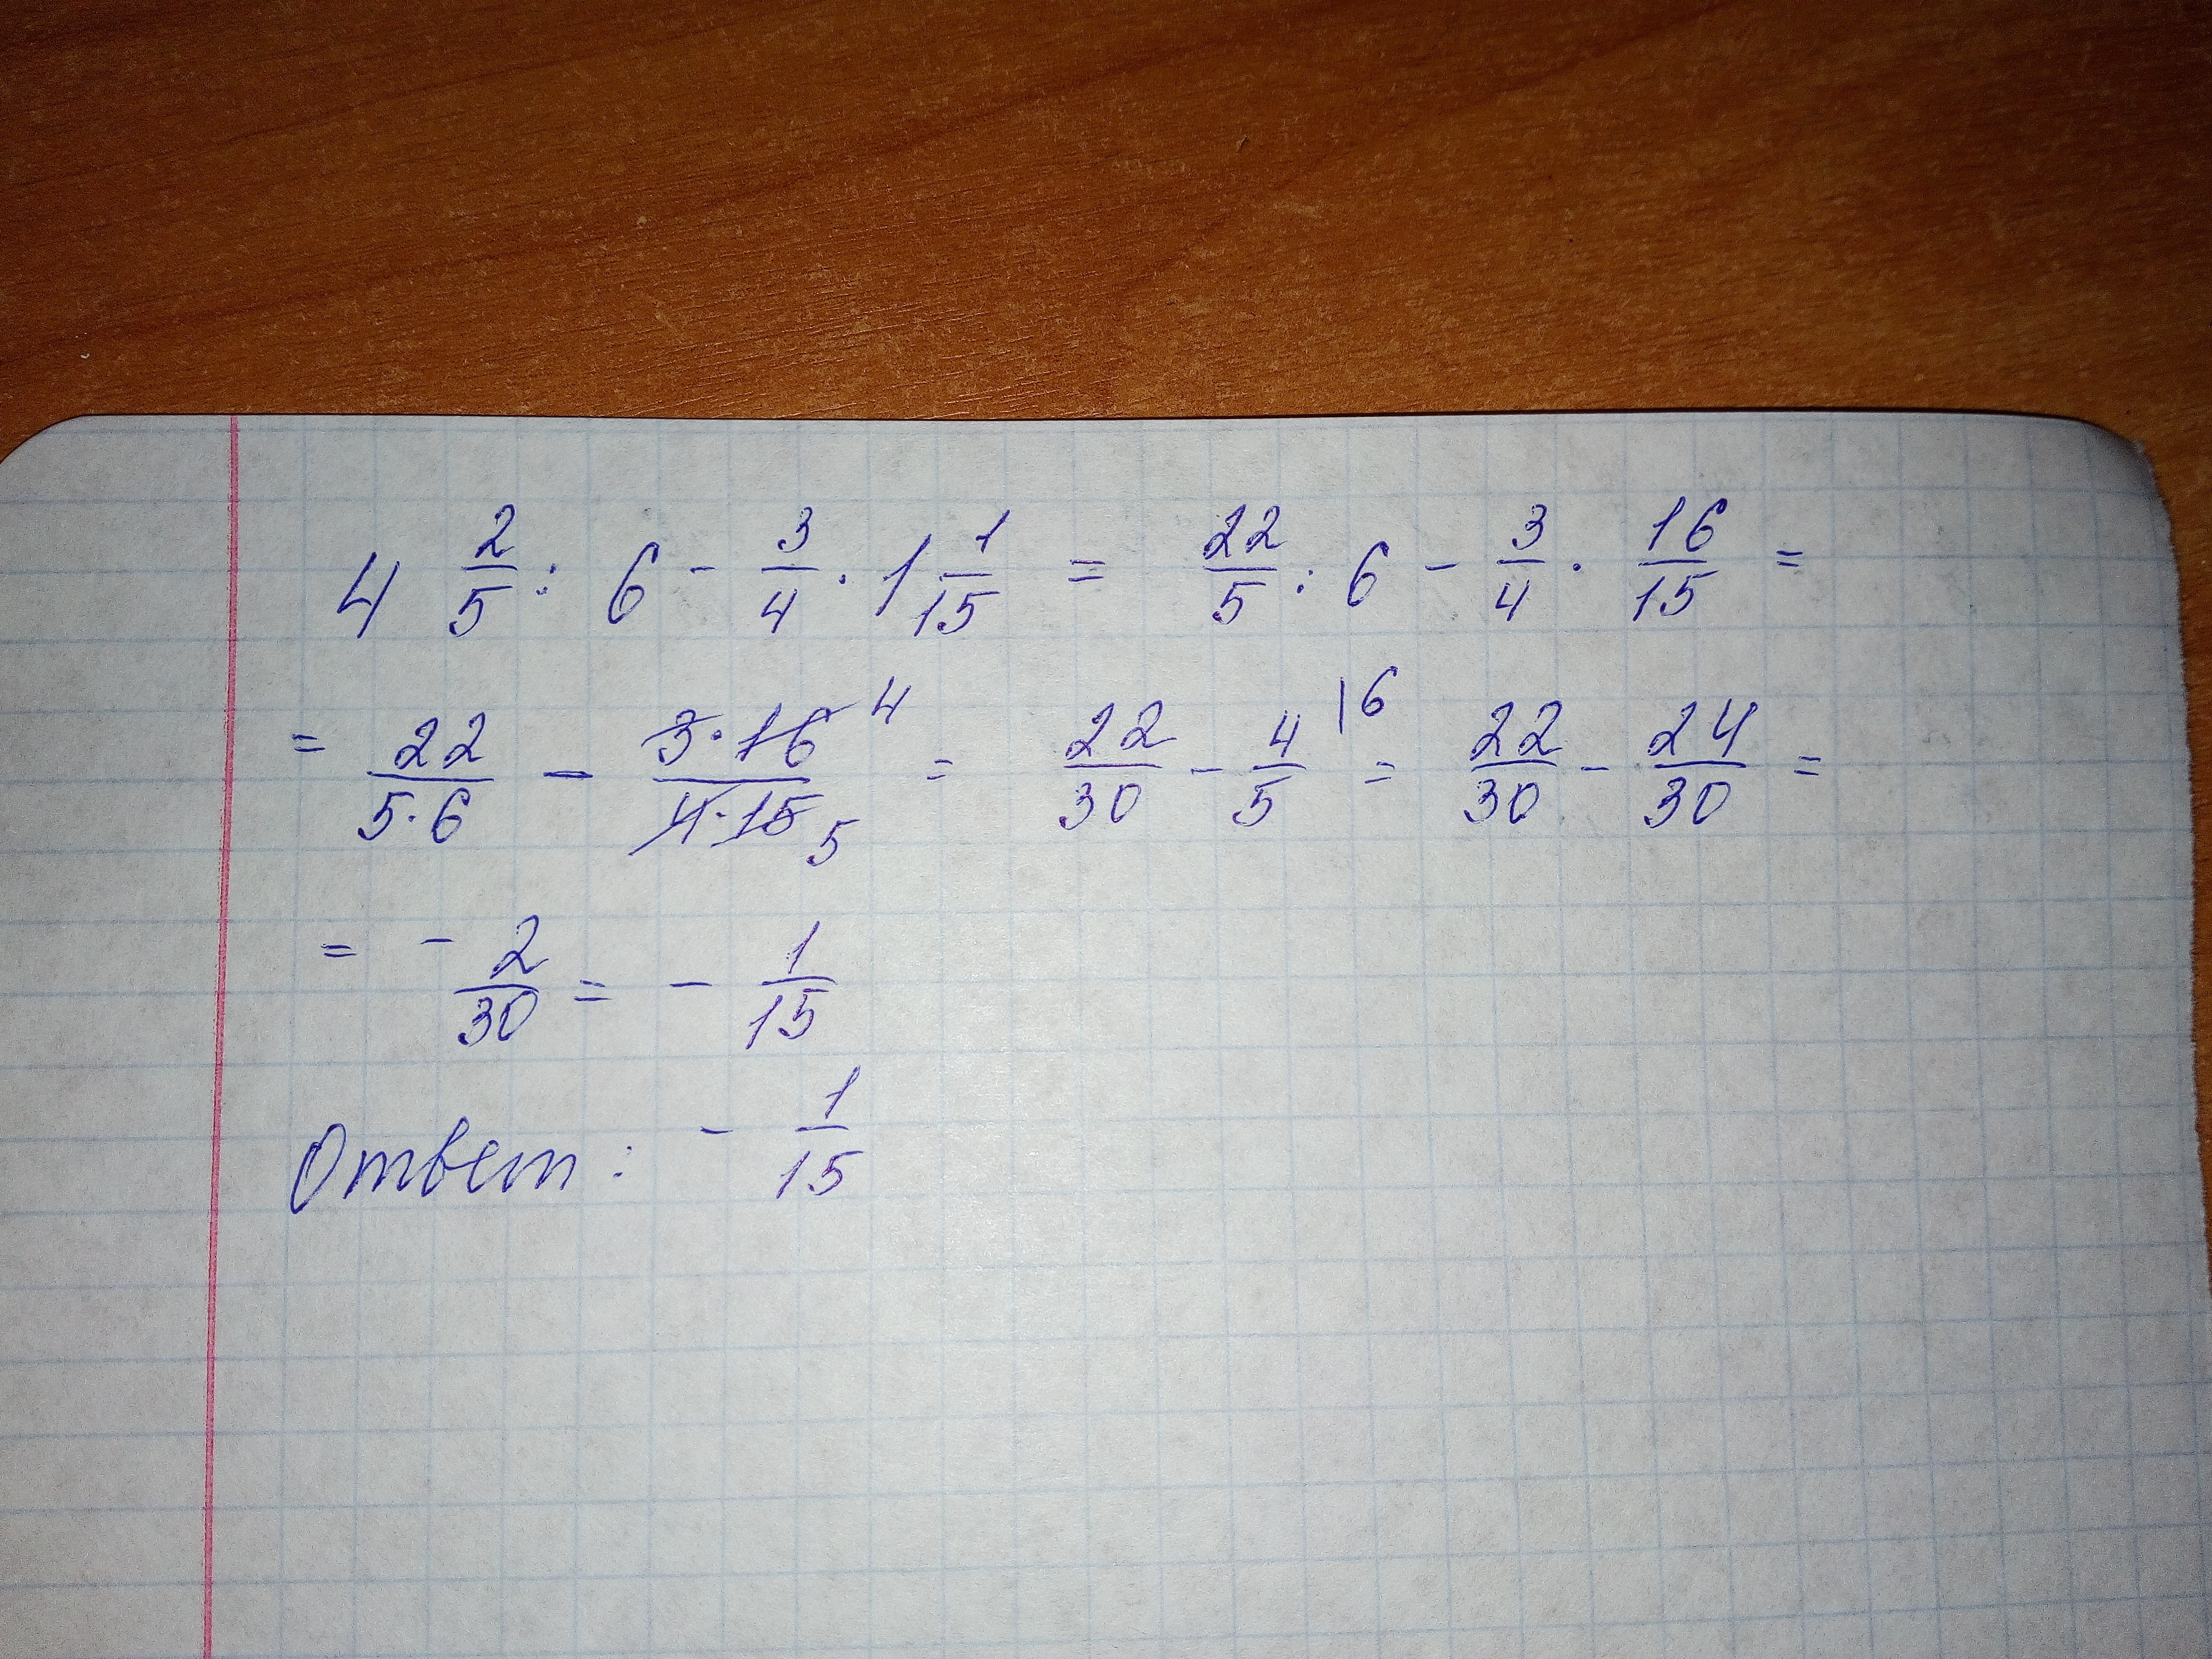 4 2/5 : 6 - 3/4 · 1 1/15 = 22/5 : 6 - 3/4 · 16/15 =
= 22/5·6 - 3·16 4/4·15 5 = 22/30 - 4/5 |6 = 22/30 - 24/30 =
= - 2/30 = - 1/15
Ответ: - 1/15